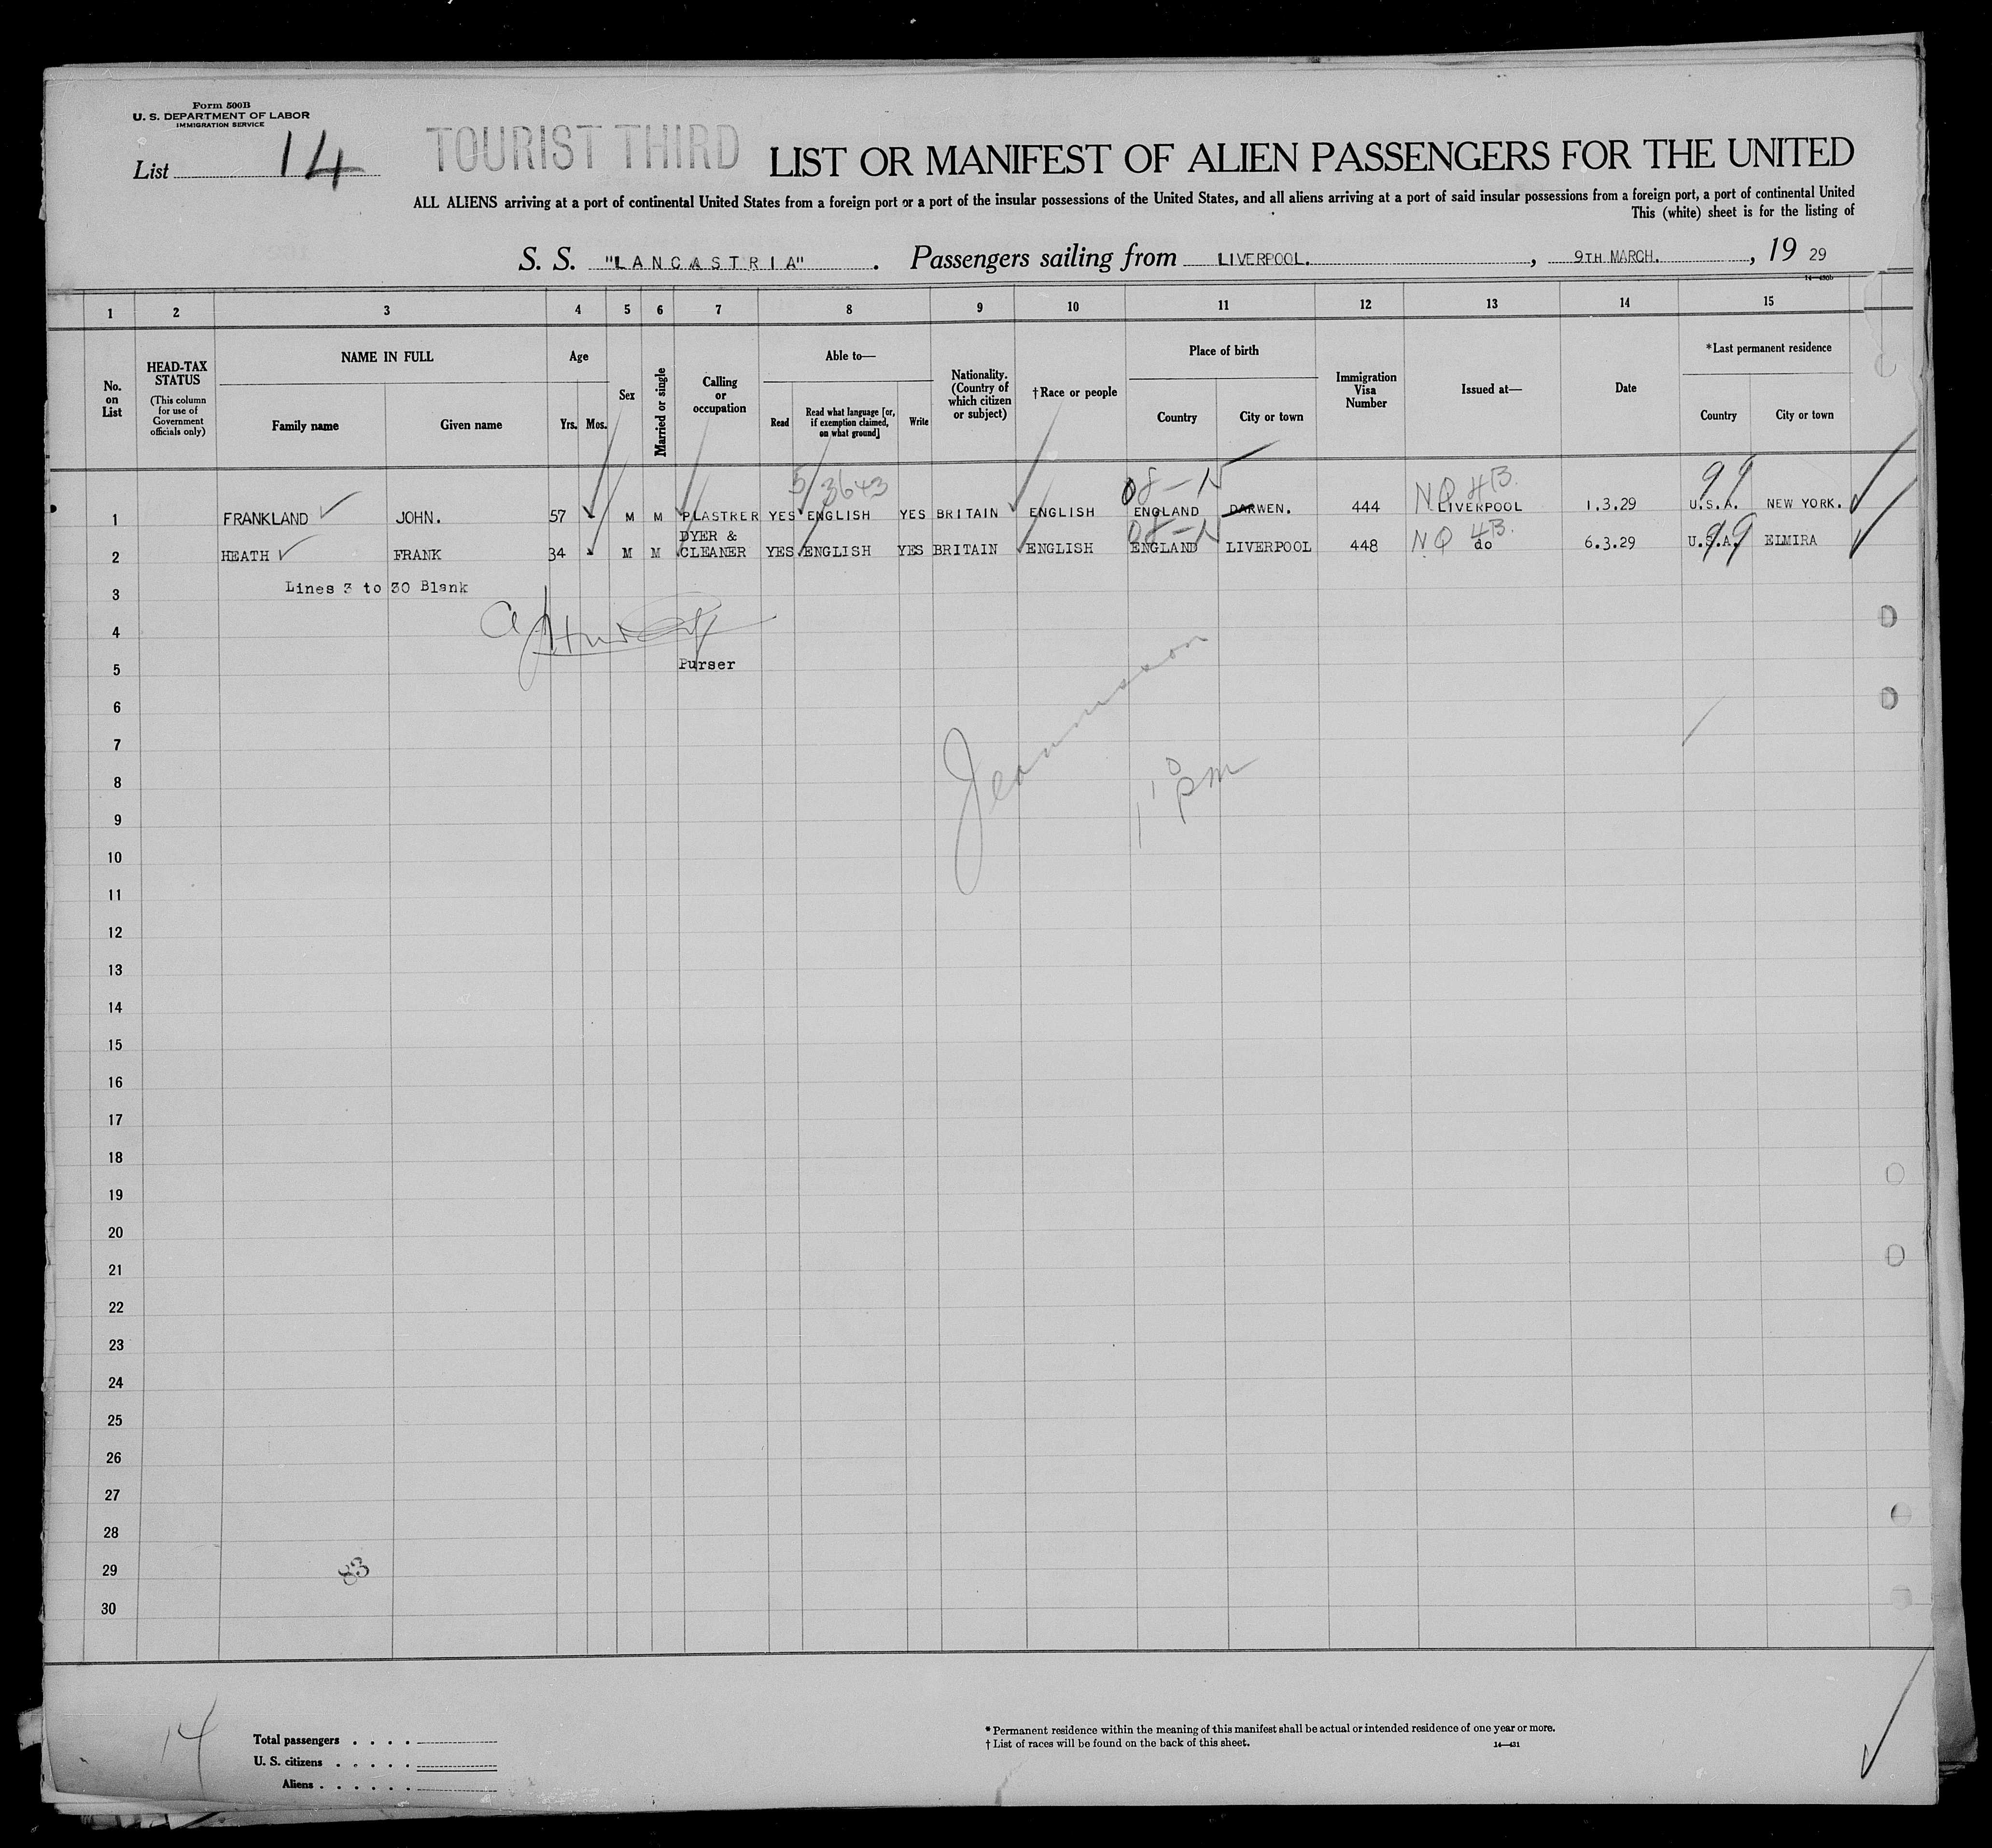 Form 500B
U. S. DEPARTMENT OF LABOR
IMMIGRATION SERVICE
List 14
TOURIST THIRD
LIST OR MANIFEST OF ALIEN PASSENGERS FOR THE UNITED
ALL ALIENS arriving at a port of continental United States from a foreign port or a port of the insular possessions of the United States, and all aliens arriving at a port of said insular possessions from a foreign port, a port of continental United
This (white) sheet is for the listing of
S. S. "LANCASTRIA" . Passengers sailing from LIVERPOOL. , 9TH MARCH. , 19 29
14—430b
1 2 3 4 5 6 7 8 9 10 11 12 13 14 15
No. on List
HEAD-TAX STATUS
(This column for use of Government officials only)
NAME IN FULL
Family name
Given name
Age
Yrs. Mos.
Sex
Married or single
Calling or occupation
Able to—
Read
Read what language [or, if exemption claimed, on what ground]
Write
Nationality. (Country of which citizen or subject)
†Race or people
Place of birth
Country
City or town
Immigration Visa Number
Issued at—
Date
*Last permanent residence
Country
City or town
5/3643
08—N
NQ 4B.
99
1 FRANKLAND JOHN. 57 - M M PLASTRER YES ENGLISH YES BRITAIN ENGLISH ENGLAND DARWEN. 444 LIVERPOOL 1.3.29 U.S.A. NEW YORK.
08—N
NQ 4B.
99
2 HEATH FRANK 34 - M M DYER & CLEANER YES ENGLISH YES BRITAIN ENGLISH ENGLAND LIVERPOOL 448 do 6.3.29 U.S.A. ELMIRA
3 Lines 3 to 30 Blank
4
5 Purser
6
7
8
110 pm
9
10
11
12
13
14
15
16
17
18
19
20
21
22
23
24
25
26
27
28
29 83
30
14
Total passengers . . . .
U. S. citizens . . . . .
Aliens . . . . . .
* Permanent residence within the meaning of this manifest shall be actual or intended residence of one year or more.
† List of races will be found on the back of this sheet.
14—431